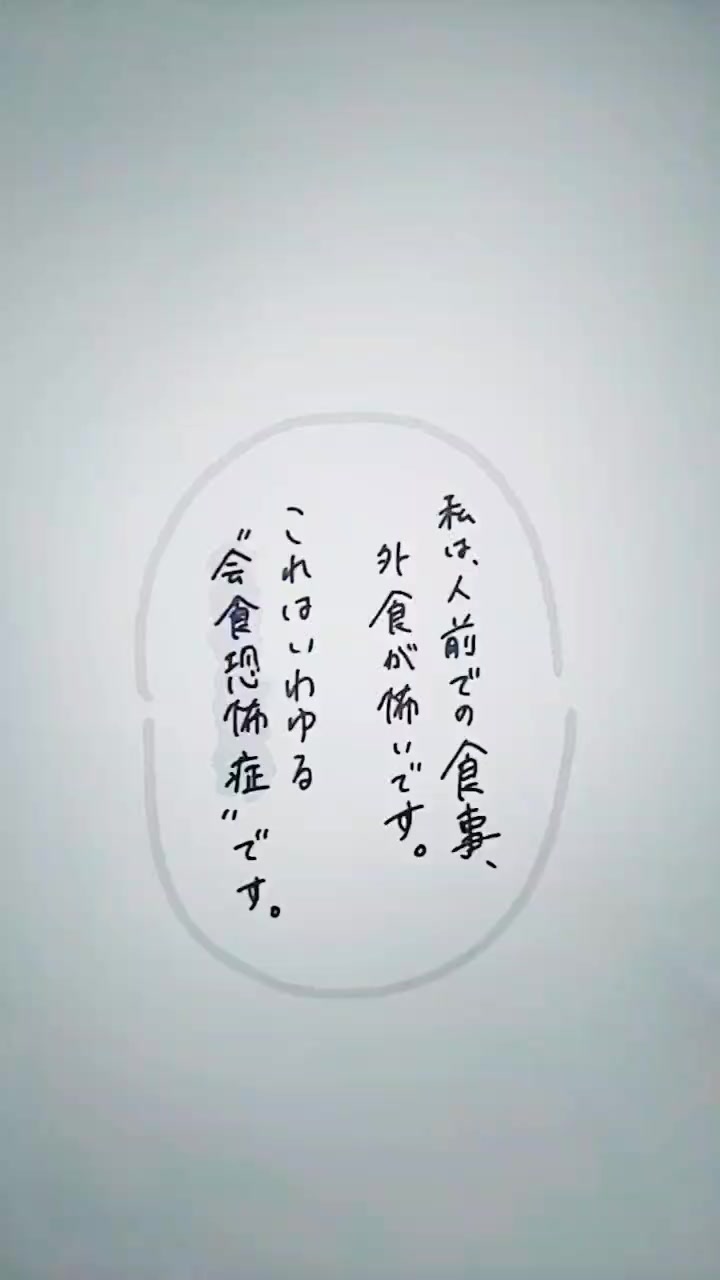 私は、人前での食事、
外食が怖いです。
これはいわゆる
“会食恐怖症”です。